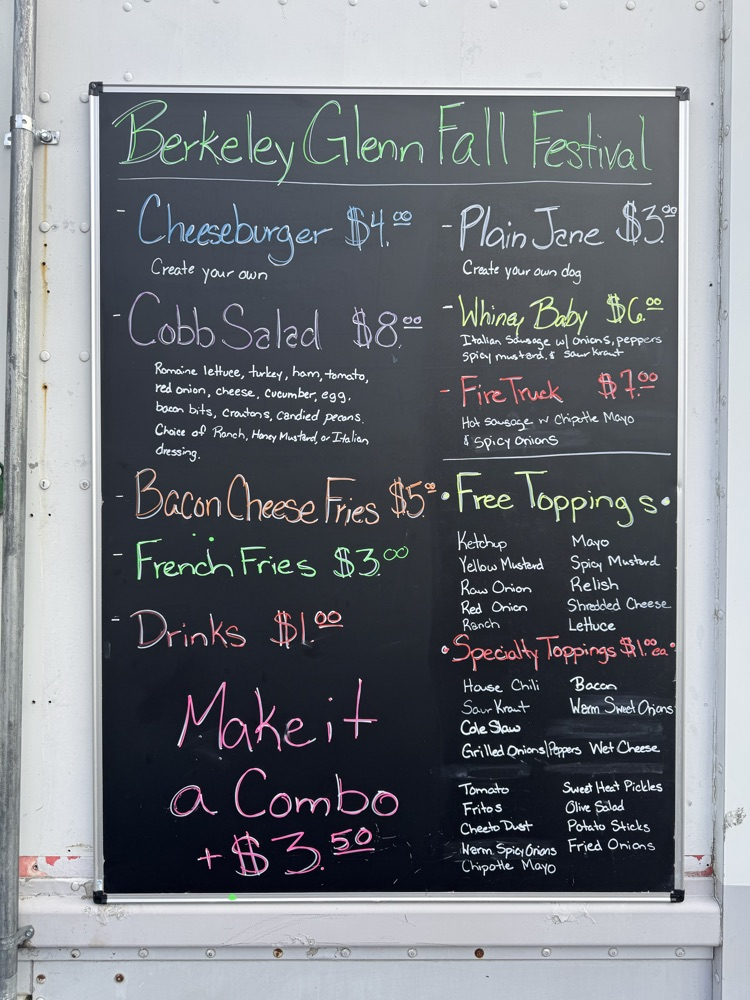 Berkeley Glenn Fall Festival
- Cheeseburger $4.00
Create your own
- Cobb Salad $8.00
Romaine lettuce, turkey, ham, tomato,
red onion, cheese, cucumber, egg,
bacon bits, croutons, candied pecans.
Choice of Ranch, Honey Mustard, or Italian
dressing.
- Bacon Cheese Fries $5.00
- French Fries $3.00
- Drinks $1.00
Make it
a Combo
+ $3.50
- Plain Jane $3.00
Create your own dog
- Whiney Baby $6.00
Italian Sausage w/ onions, peppers
spicy mustard, & saur kraut
- Fire Truck $7.00
Hot sausage w Chipotle Mayo
& Spicy Onions
• Free Toppings •
Ketchup Mayo
Yellow Mustard Spicy Mustard
Raw Onion Relish
Red Onion Shredded Cheese
Ranch Lettuce
• Specialty Toppings $1.00 ea •
House Chili Bacon
Saur Kraut Warm Sweet Onions
Cole Slaw
Grilled Onions/Peppers Wet Cheese
Tomato Sweet Heat Pickles
Fritos Olive Salad
Cheeto Dust Potato Sticks
Warm Spicy Onions Fried Onions
Chipotle Mayo